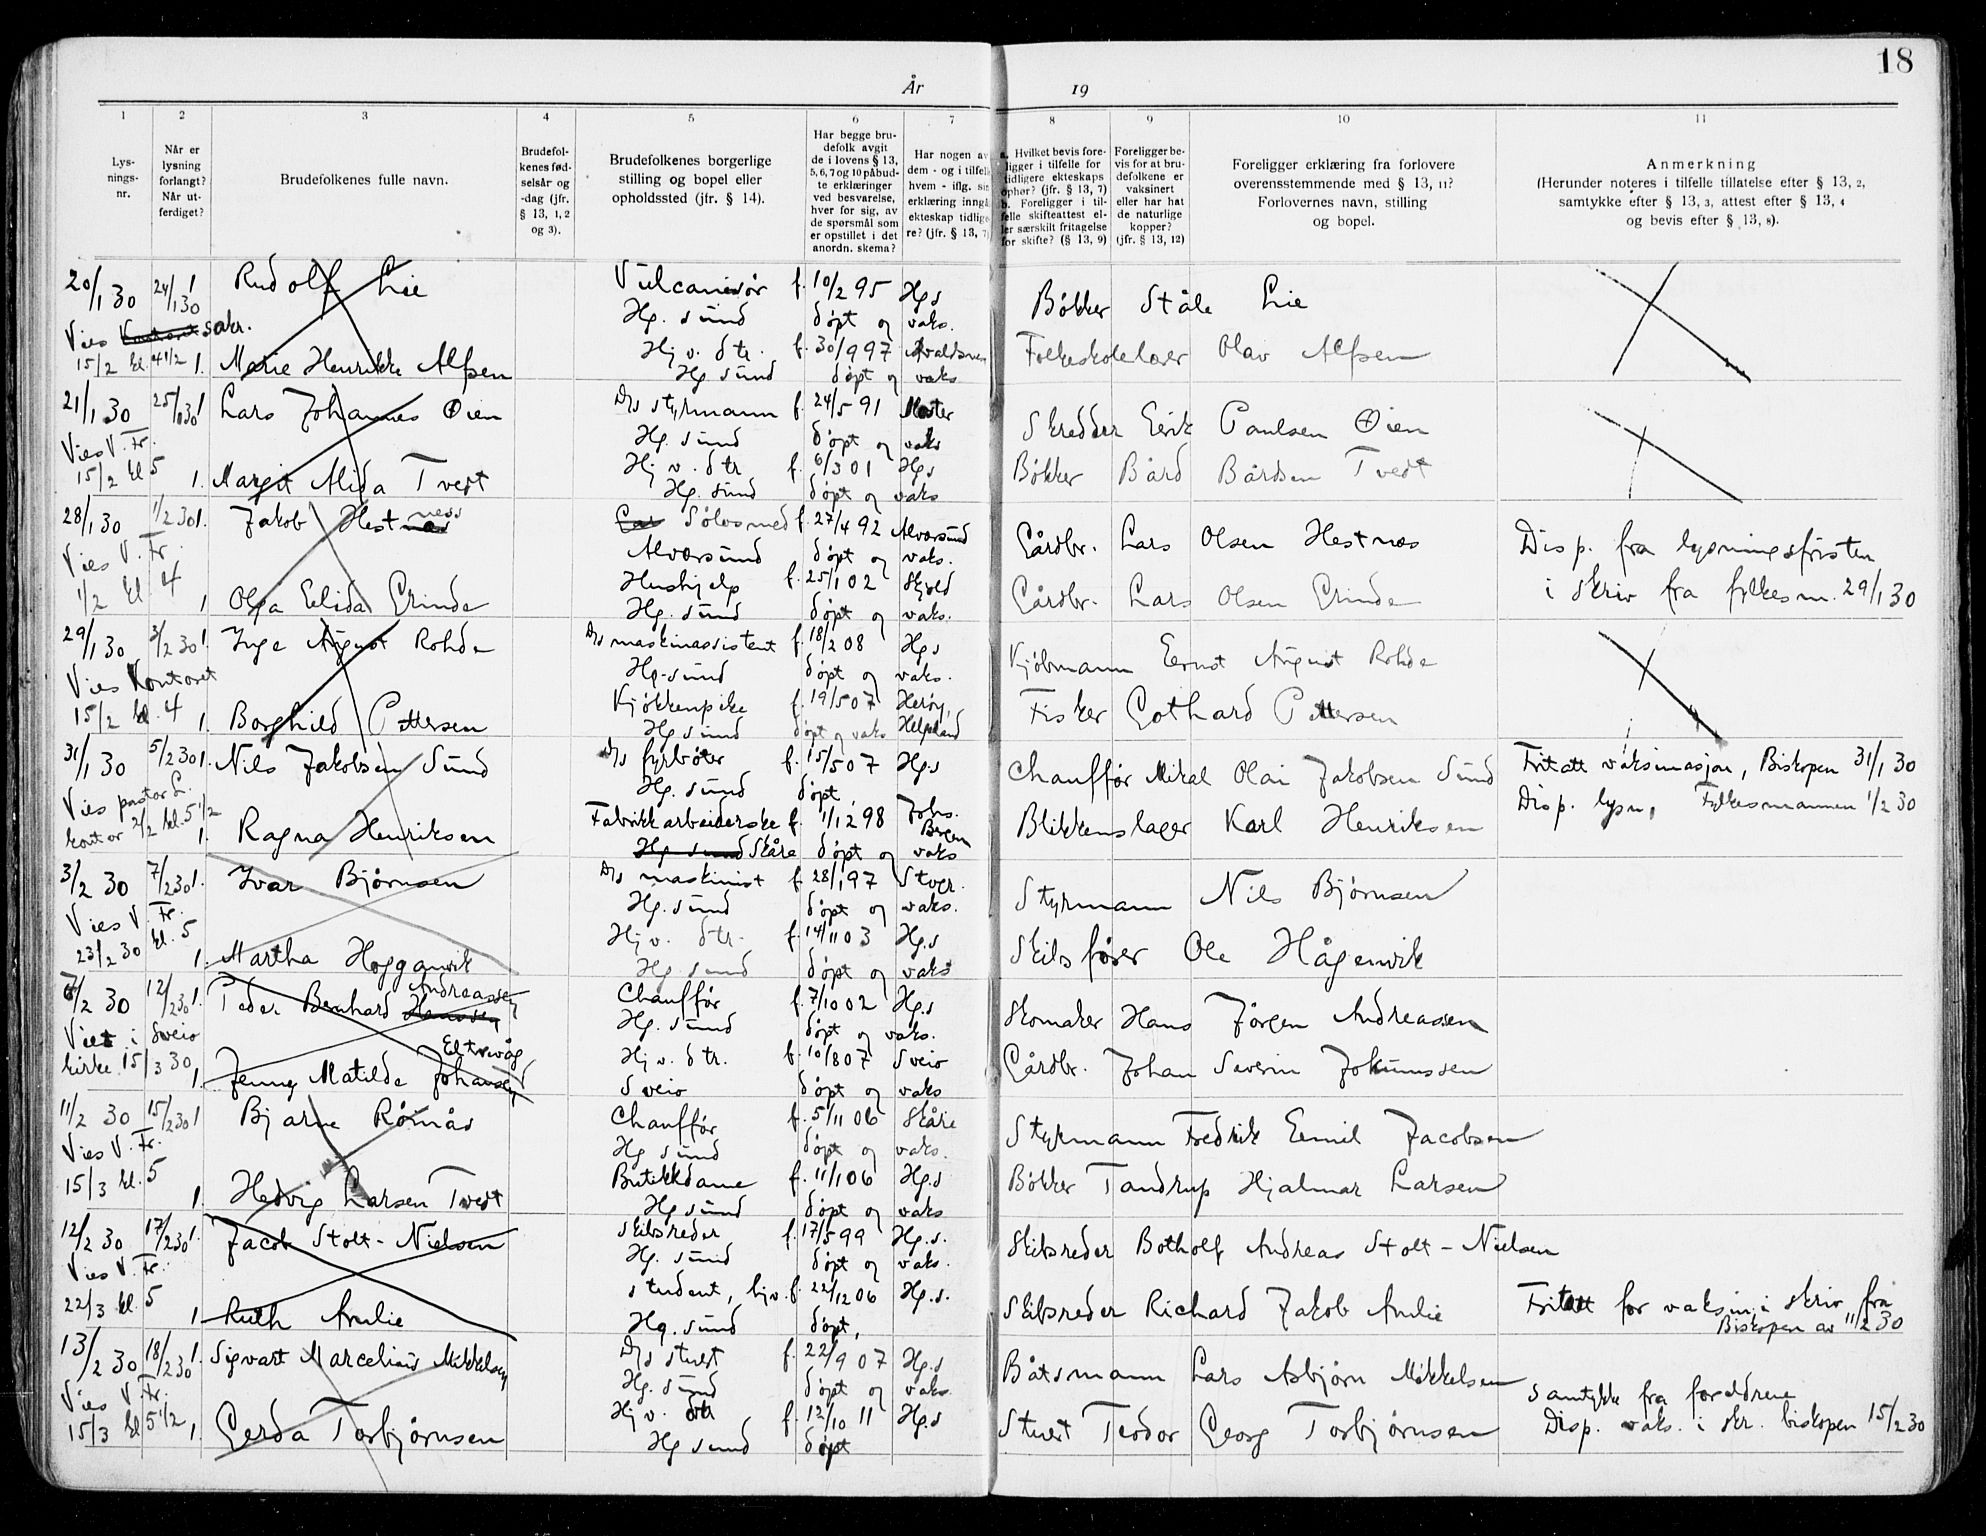 18
År 19
1 2 3 4 5 6 7 8 9 10 11
Lys-
nings-
nr.
Når er
lysning
forlangt?
Når ut-
ferdiget?
Brudefolkenes fulle navn.
Brudefol-
kenes fød-
selsår og
-dag (jfr.
§ 13, 1, 2
og 3).
Brudefolkenes borgerlige
stilling og bopel eller
opholdssted (jfr. § 14).
Har begge bru-
defolk avgit
de i lovens § 13,
5, 6, 7 og 10 påbud-
te erklæringer
ved besvarelse,
hver for sig, av
de spørsmål som
er opstillet i det
anordn. skema?
Har nogen av
dem - og i tilfelle
hvem - iflg. sin
erklæring inngå
ekteskap tidlige-
re? (jfr. § 13, 7)
a. Hvilket bevis fore-
ligger i tilfelle for
tidligere ekteskaps
ophør? (jfr. § 13, 7)
b. Foreligger i til-
felle skifteattest el-
ler særskilt fritagelse
for skifte? (§ 13, 9)
Foreligger be-
vis for at bru-
defolkene er
vaksinert
eller har hat
de naturlige
kopper?
(jfr. § 13, 12)
Foreligger erklæring fra forlovere
overensstemmende med § 13, 11?
Forlovernes navn, stilling
og bopel.
Anmerkning
(Herunder noteres i tilfelle tillatelse efter § 13, 2,
samtykke efter § 13, 3, attest efter § 13, 4
og bevis efter § 13, 8).
20/1 30 24/1 30 1 Rudolf Lie Vulcanisør f. 10/2 95 Hgs Bøkker Ståle Lie
Vies Kontoret sakr. Hg. sund døpt og vaks.
15/2 kl. 4 1/2 1. Marie Henrikke Alfsen Hj v. dtr. f. 30/9 97 Avaldsnes Folkeskolelærer Olav Alfsen
Hg sund døpt og vaks
21/1 30 25/1 30 1 Lars Johannes Øien D/s styrmann f. 24/5 91 Moster Skredder Eirik Paulsen Øien
Vies V. Fr. Hg. sund døpt og vaks
15/2 kl 5 1. Margit Alida Tvedt Hj v. dtr f. 6/3 01 Hgs Bøkker Bård Bårdsen Tvedt
Hg. sund døpt og vaks
28/1 30 1/2 30 1. Jakob Hestnæs ness Sølvsmed f. 27/4 92 Alversund Gårdbr. Lars Olsen Hestnæs Disp. fra lysningsfristen
Vies V. Fr. Alversund døpt og vaks.
1/2 kl 4 1 Olga Elida Grinde Hushjelp f. 25/1 02 Skjold Gårdbr. Lars Olsen Grinde i skriv fra fylkesm. 29/1 30
Hg. sund døpt og vaks.
29/1 30 3/2 30 1 Inge August Rohde D/s maskinassistent f. 18/2 08 Hgs Kjøbmann Ernst August Rohde
Vies Kontoret Hg. sund døpt og vaks.
15/2 kl. 4 1. Borghild Pettersen Kjøkkenpike f. 19/5 07 Herøy, Fisker Gothard Pettersen
Hg sund døpt og vaks Helgeland
31/1 30 5/2 30 1. Nils Jakobsen Sund D/s fyrbøter f. 15/5 07 Hgs Chauffør Mikal Olai Jakobsen Sund Fritatt vaksinasjon, Biskopen 31/1 30
Vies pastor L. Hg. sund døpt
kontor 2/2 kl. 5 1/2 1. Ragna Henriksen Fabrikkarbeiderske f. 1/12 98 Johs. Bergen Blikkenslager Karl Henriksen Disp. lysn, Fylkesmannen 1/2 30
Hg sund Skåre døpt og vaks
3/2 30 7/2 30 1. Ivar Bjørnsen D/s maskinist f. 28/1 97 Styrmann Nils Bjørnsen
Vies V. Fr. Hg. sund døpt og vaks.
23/2 30 kl. 5 1. Martha Hogganvik Hj v. dtr. f. 14/11 03 Hg.s Skibsfører Ole Hågenvik
Hg sund døpt og vaks
7/2 30 12/2 30 1. Peder Bernhard Hanssen Andreassen Chauffør f. 7/10 02 Hg.s Skomaker Hans Jørgen Andreassen
Viet i Sveio Hg. sund døpt og vaks.
kirke 15/3 30 1 Jenny Matilde Johansen Eltrevåg Hj v. dtr. f. 10/8 07 Sveio Gårdbr. Johan Severin Jokumssen
Sveio døpt og vaks
11/2 30 15/2 30 1 Bjarne Rømås Chauffør f. 5/11 06 Skåre Styrmann Fredrik Emil Jacobsen
Vies V. Fr. Hg sund døpt og vaks.
15/3 kl. 5 1. Hedvig Larsen Tvedt Butikkdame f. 11/1 06 Hg.s Bøkker Tandrup Hjalmar Larsen
Hg sund døpt og vaks
12/2 30 17/2 30 1. Jacob Stolt-Nielsen Skibsreder f. 17/5 99 Hg.s. Skibsreder Botholf Andreas Stolt-Nielsen
Vies V. Fr. Hg. sund døpt og vaks.
22/3 kl. 5 1 Ruth Amlie student, hjv. f. 22/12 06 Hg.s. Skibsreder Richard Jakob Amlie Fritatt for vaksin. i skriv fra
Hg. sund døpt, Biskopen av 11/2 30
13/2 30 18/2 30 1. Sigvart Marcelius Mikkelsen D/s stuert f. 22/9 07 Hg.s Båtsmann Lars Asbjørn Mikkelsen
Vies V. Fr. Hg. sund døpt og vaks. samtykke fra foreldrene
15/3 kl 5 1/2 1. Gerda Torbjørnsen Hj v. dtr f. 12/10 11 Hg.s Stuert Teodor Georg Torbjørnsen Disp. vaks. i skr. biskopen 15/2 30
Hg sund døpt